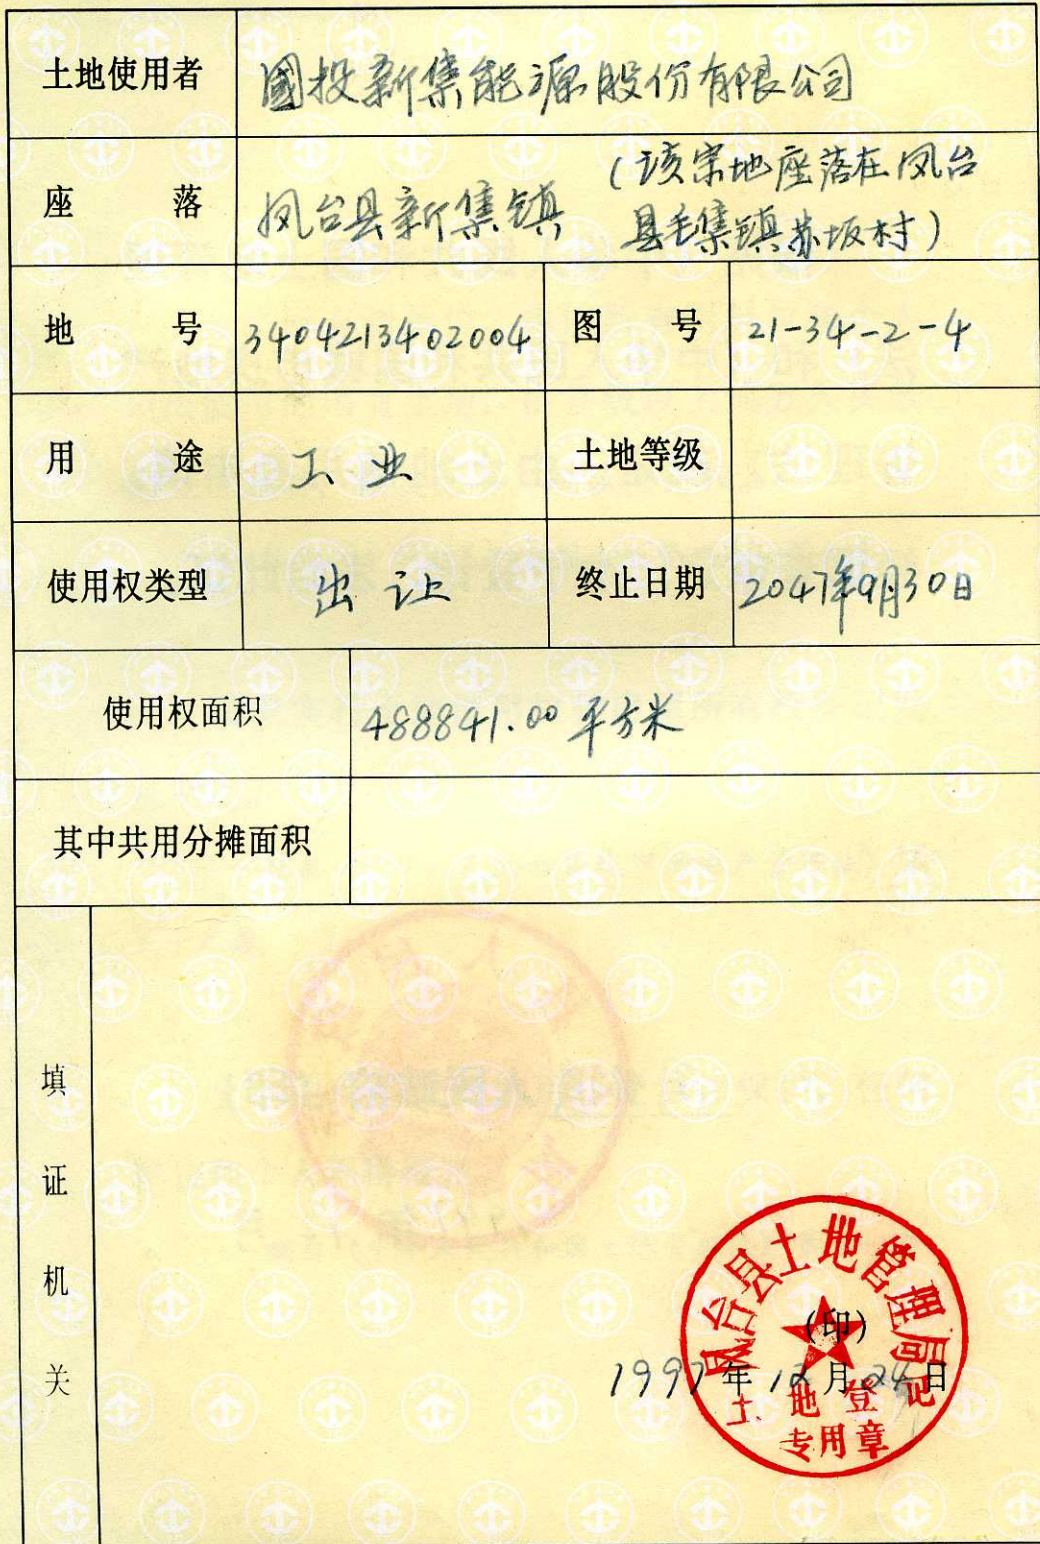 土地使用者 國投新集能源股份有限公司
座 落 凤台县新集镇 (该宗地座落在凤台
县毛集镇苏坂村)
地 号 3404213402004 图 号 21-34-2-4
用 途 工业 土地等级
使用权类型 出让 终止日期 2047年9月30日
使用权面积 488841.00平方米
其中共用分摊面积
填证机关
凤台县土地管理局
(印)
1997年12月24日
土地登记
专用章